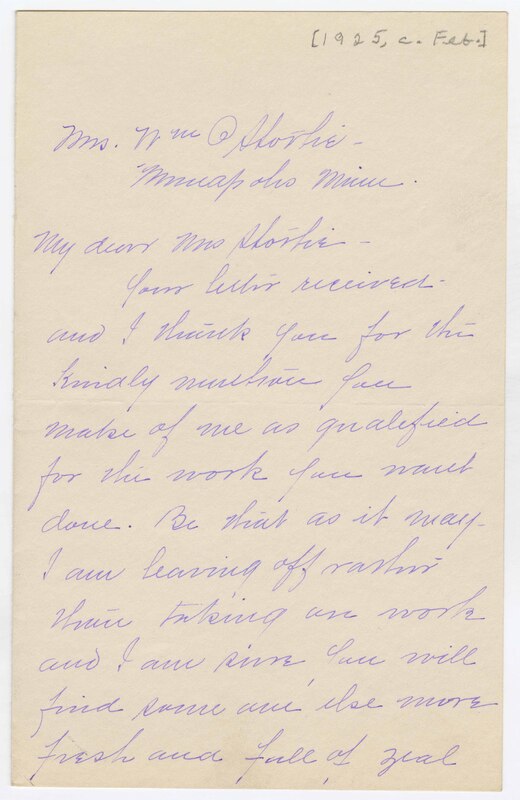 [1925, c. Feb.]
Mrs. Wm O Storlie -
Minneapolis Minn.
My dear Mrs Storlie -
Your letter received -
and I thank you for the
kindly mention you
make of me as qualified
for the work you want
done. Be that as it may -
I am leaving off rather
than taking on work
and I am sure you will
find some one else more
fresh and full of zeal